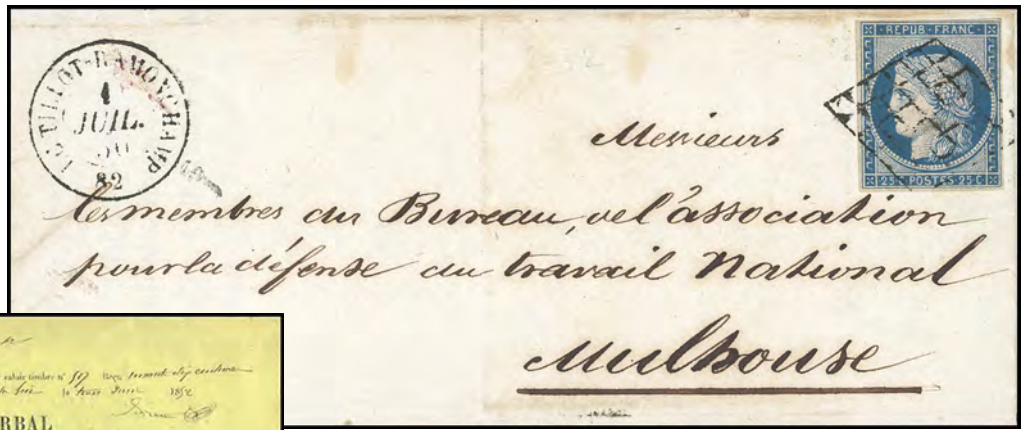 LE TILLOT-RAMONCHAMP
1
JUIL.
50
82
REPUB·FRANC·
25 C POSTES 25 C
Messieurs
les membres du Bureau, de l'association
pour la défense du travail National
Mulhouse
timbre n° 517 Reçu
le trois Juin 1852
RBAL